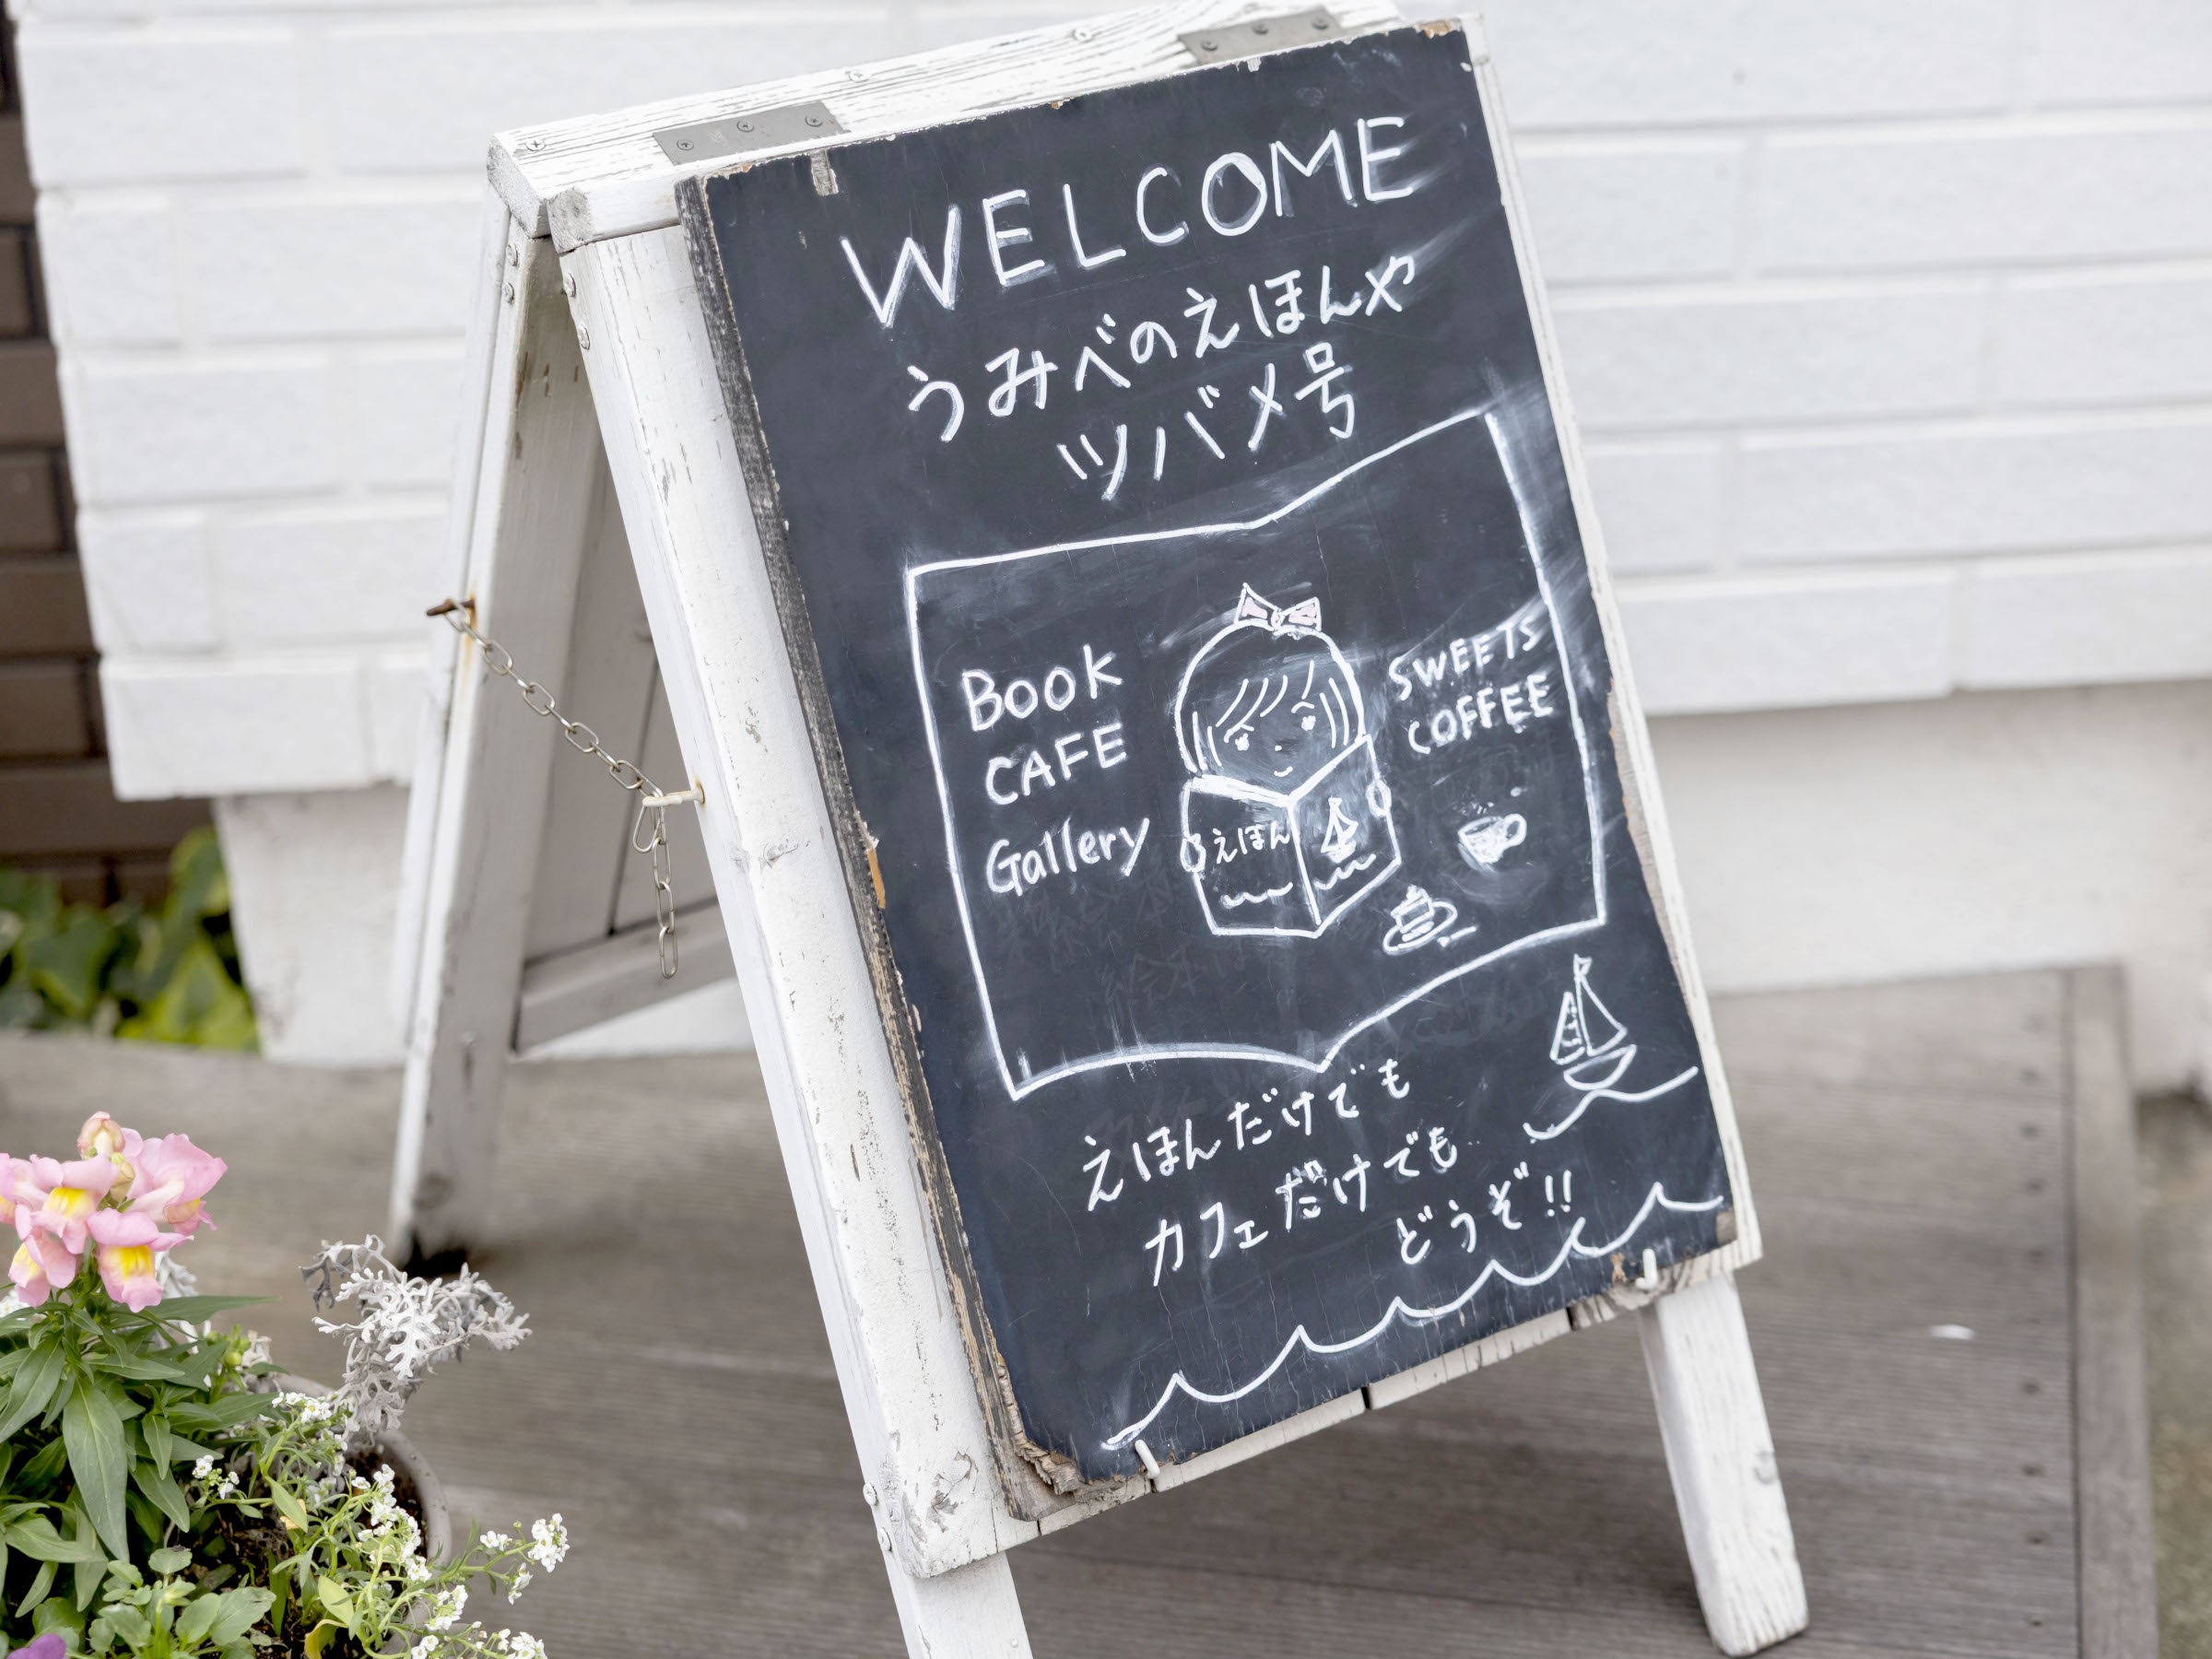 WELCOME
うみべのえほんや
ツバメ号
Book
CAFE
Gallery
えほん
SWEETS
COFFEE
えほんだけでも
カフェだけでも
どうぞ!!